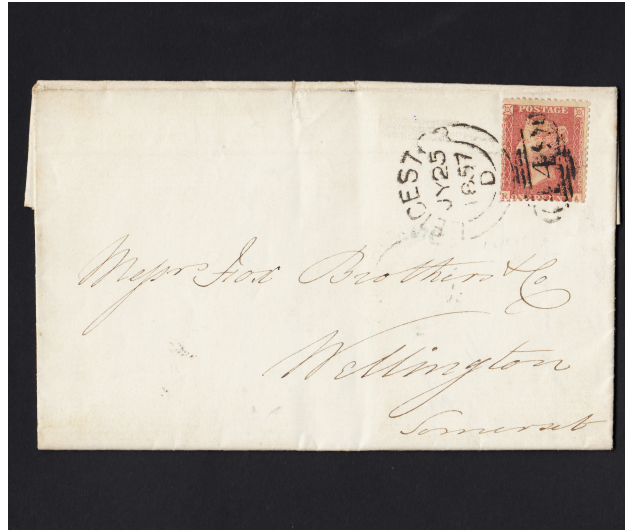 POSTAGE
JY25
1857
D
Messrs Fox Brothers & Co
Wellington
Somerset